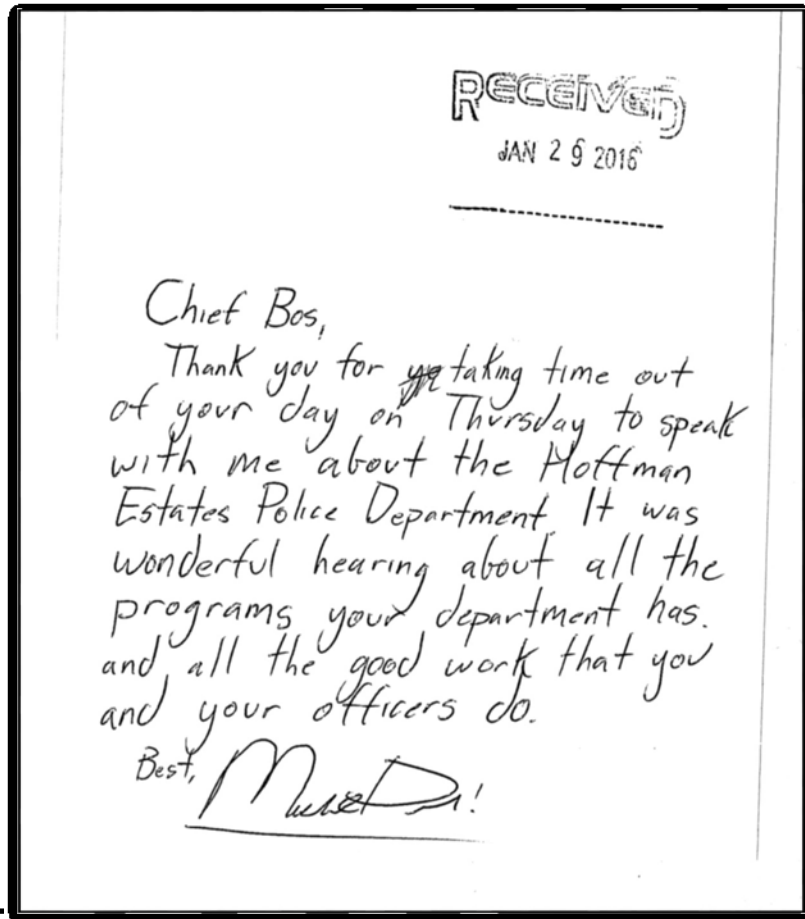 RECEIVED
JAN 29 2016
Chief Bos,
Thank you for taking time out
of your day on Thursday to speak
with me about the Hoffman
Estates Police Department. It was
wonderful hearing about all the
programs your department has.
and all the good work that you
and your officers do.
Best,